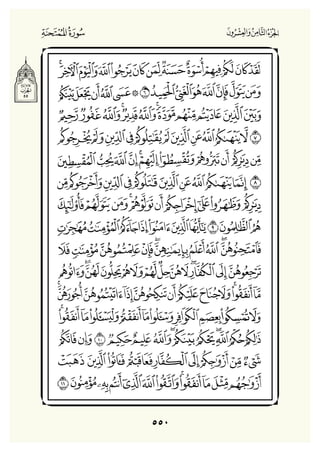 الجزء الثامن والعشرون
سورة الممتحنة
لقد كان لكم فيهم أسوة حسنة لمن كان يرجوا الله واليوم الآخر
ومن يتول فإن الله هو الغني الحميد ٦ ۞ عسى الله أن يجعل بينكم
وبين الذين عاديتم منهم مودة والله قدير والله غفور رحيم
٧ لا ينهىكم الله عن الذين لم يقتلوكم في الدين ولم يخرجوكم
من ديركم أن تبروهم وتقسطوا إليهم إن الله يحب المقسطين
٨ إنما ينهىكم الله عن الذين قتلوكم في الدين وأخرجوكم من
ديركم وظهروا على إخراجكم أن تولوهم ومن يتولهم فأولئك
هم الظلمون ٩ يأيها الذين ءامنوا إذا جاءكم المؤمنت مهجرت
فامتحنوهن الله أعلم بإيمنهن فإن علمتموهن مؤمنت فلا
ترجعوهن إلى الكفار لا هن حل لهم ولا هم يحلون لهن وءاتوهم
ما أنفقوا ولا جناح عليكم أن تنكحوهن إذا ءاتيتموهن أجورهن
ولا تمسكوا بعصم الكوافر وسئلوا ما أنفقتم وليسئلوا ما أنفقوا
ذلكم حكم الله يحكم بينكم والله عليم حكيم ١٠ وإن فاتكم
شيء من أزوجكم إلى الكفار فعاقبتم فئاتوا الذين ذهبت
أزوجهم مثل ما أنفقوا واتقوا الله الذي أنتم به مؤمنون ١١
٥٥٠